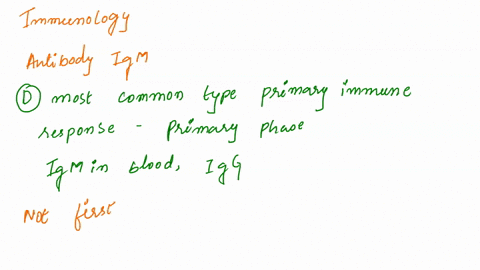 Immunology
Antibody IgM
D most common type primary immune
response - primary phase
IgM in blood, IgG
Not first